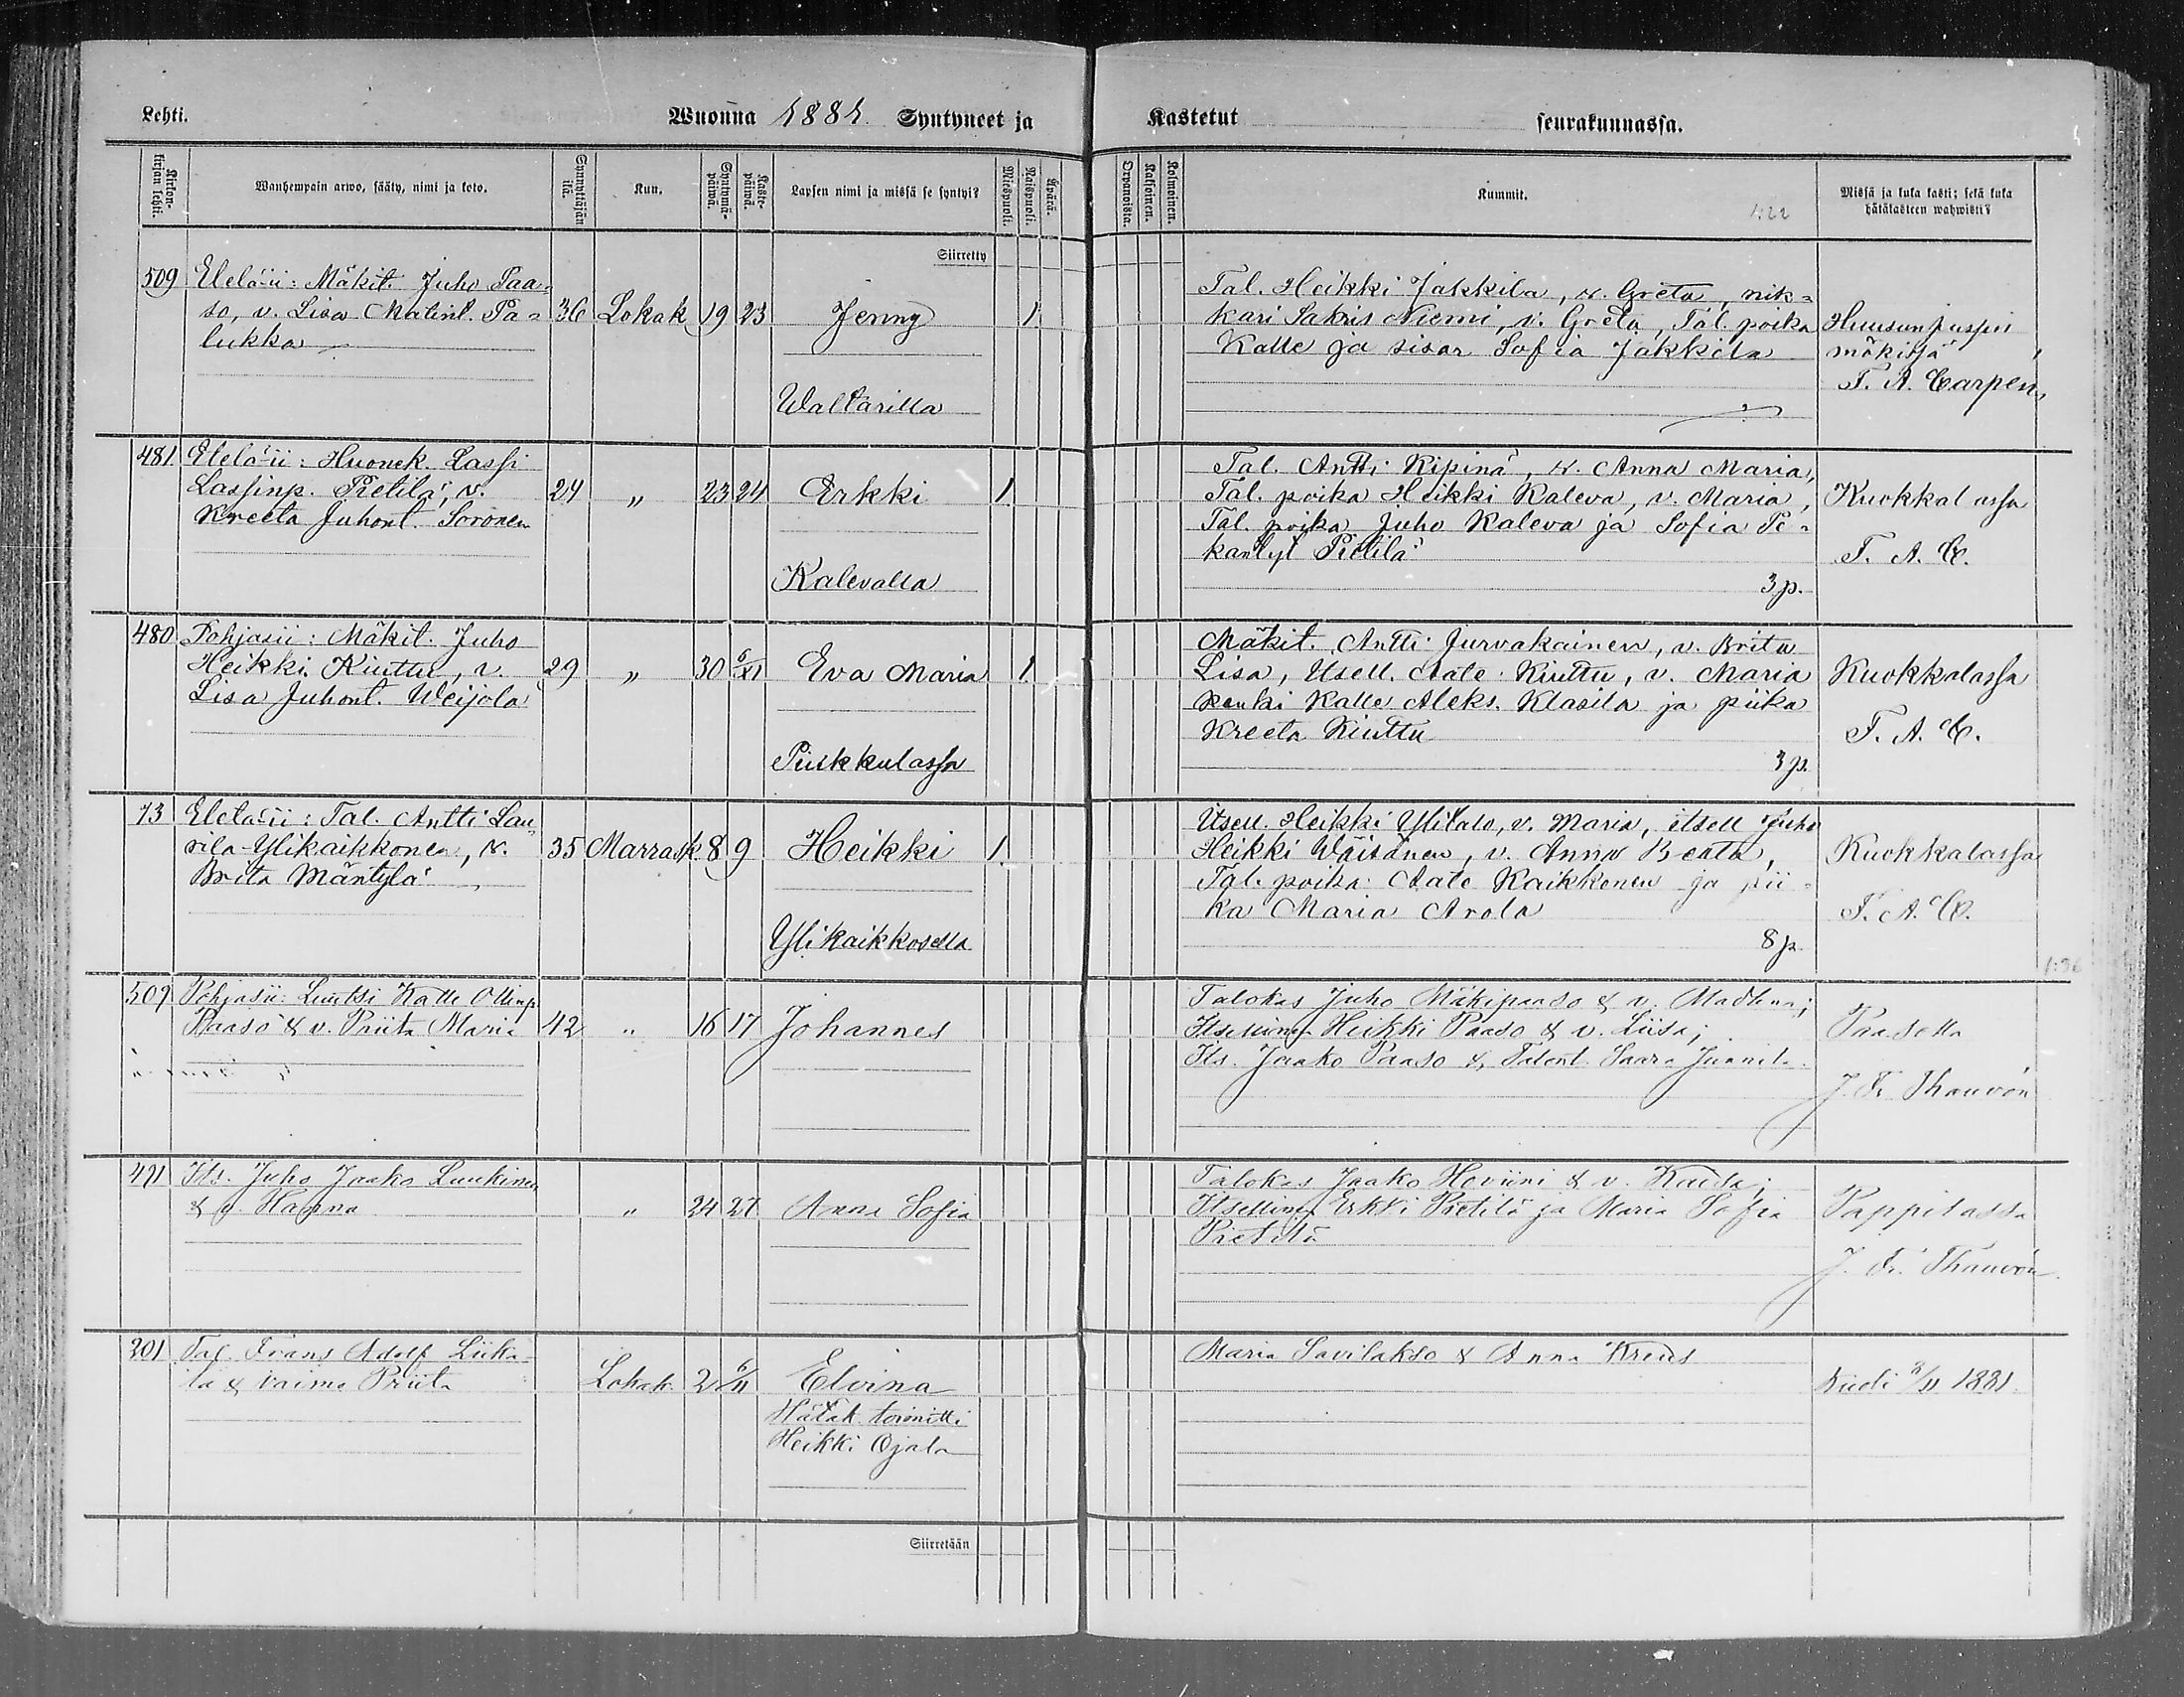 Lehti.
Wuonna 1881. Syntyneet ja
Kastetut seurakunnassa.
Kirkon-kirjan lehti.
Wanhempain arwo, sääty, nimi ja koto.
Synnyttäjän ikä.
Kuu.
Syntymä-päiwä.
Kaste-päiwä.
Lapsen nimi ja missä se syntyi?
Miespuoli.
Naispuoli.
Äpärä.
Orpanoista.
Kaksoinen.
Kolmoinen.
Kummit.
1:22
Missä ja kuka kasti; sekä kuka
hätäkasteen wahwisti?
Siirretty
509 Eteläii: Mäkit. Juho Paa-
so, v. Lisa Matint. Pa-
lukka
36 Lokak 19 23 Jenny 1
Waltarilla
Tal. Heikki Jakkila, v. Greta, nik-
kari Sakris Niemi, v. Greta, Tal. poika
Kalle ja sisar Sofia Jakkila
mäkissä
F. A. Carpen
481 Eteläii: Huonek. Lassi
Lassinp. Pietilä, v.
Kreeta Juhont. Soronen
24 " 23 24 Erkki 1
Kalevalla
Tal. Antti Kipinä, v. Anna Maria,
Tal. poika Heikki Kaleva, v. Maria,
Tal. poika Juho Kaleva ja Sofia Pe-
kantyt Pietilä
3 p.
Kuokkalassa
F. A. C.
480 Pohjasii: Mäkit. Juho
Heikki Kiuttu, v.
Lisa Juhont. Weijola
29 " 30 6/XI Eva Maria 1
Puikkulassa
Mäkit. Antti Jurvakainen, v. Brita
Lisa, Itsell. Aate Kiuttu, v. Maria
renki Kalle Aleks. Klasila ja piika
Kreeta Kiuttu
3 p.
Kuokkalassa
F. A. C.
73 Eteläii: Tal. Antti Lau-
rila-Ylikaikkonen, v.
Brita Mäntylä
35 Marrask. 8 9 Heikki 1.
Ylikaikkosella
Itsell. Heikki Ylitalo, v. Maria, itsell Juho
Heikki Wäisänen, v. Anna Beata,
Tal. poika Aate Kaikkonen ja pii-
ka Maria Arola
8 p.
Kuokkalassa
F. A. C.
509 Pohjasii: Luutsi Kalle Ollinp
Paaso & v. Priita Maria
42 " 16 17 Johannes
Talokas Juho Mäkipaaso & v. Madlena;
Itsellinen Heikki Paaso & v. Liisa;
Its. Jaako Paaso & Talont. Saara Junnila.
Paasolla
J. Fr. Thauvón
471 Its. Juho Jaako Luukinen
& v. Hanna
" 24 27 Anna Sofia
Talokas Jaako Heviini & v. Kaisa;
Itsellinen Erkki Pietilä ja Maria Sofia
Pietilä
Pappilassa
J. Fr. Thauvón.
201 Tal. Frans Adolf Liika-
la & vaimo Priita
Lokak. 2 6/11 Elvina
Hätäk. toimitti
Heikki Ojala
Maria Savilakso & Anna Kreus
Kuoli 8/11 1881.
Siirretään